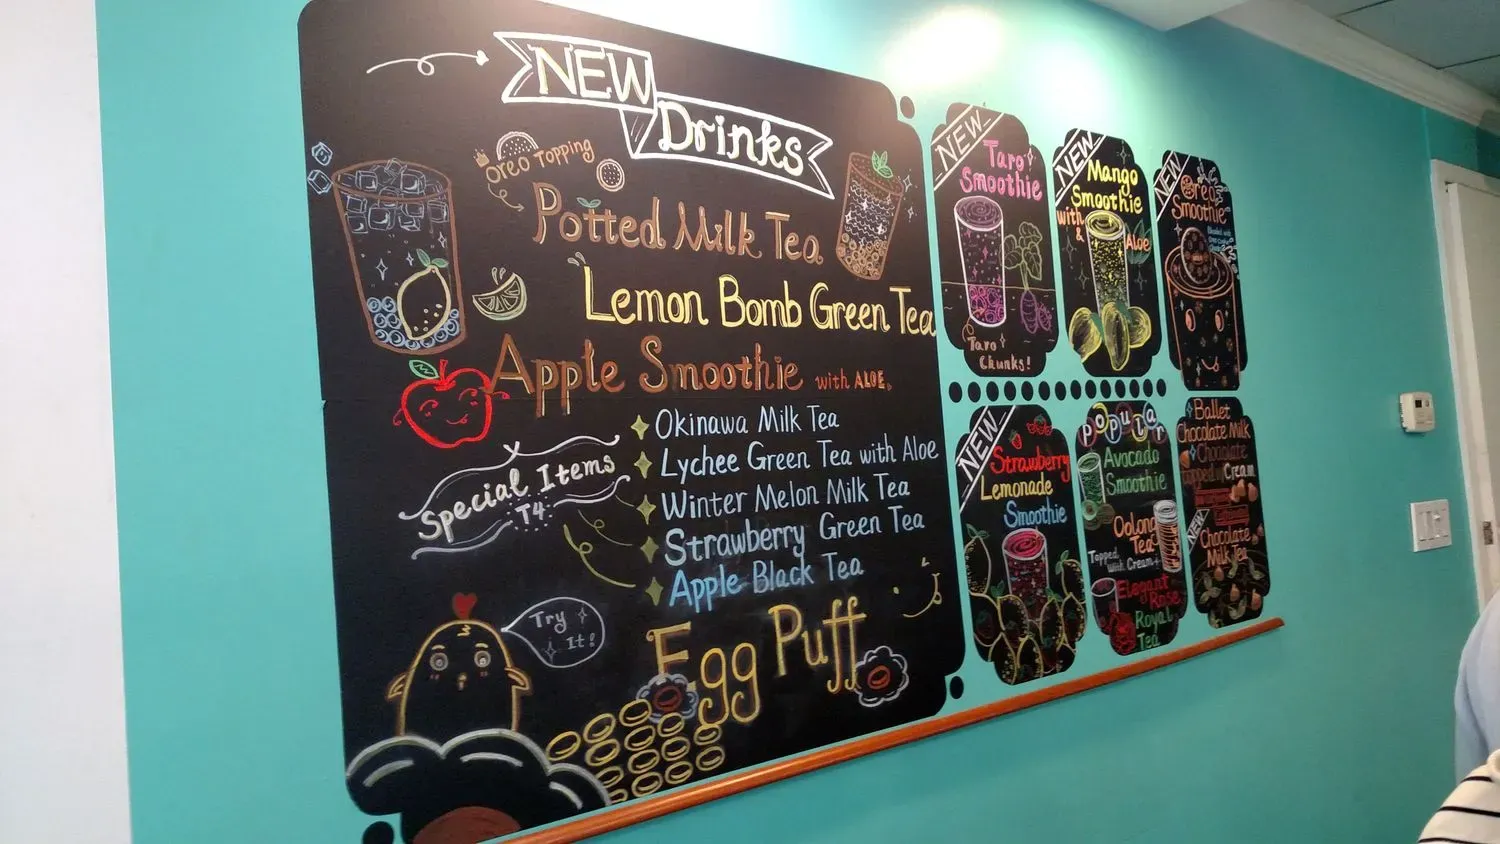 NEW
Drinks
Oreo Topping
Potted Milk Tea
Lemon Bomb Green Tea
Apple Smoothie with ALOE
Special Items
T4
Okinawa Milk Tea
Lychee Green Tea with Aloe
Winter Melon Milk Tea
Strawberry Green Tea
Apple Black Tea
Try
It!
Egg Puff
NEW
Taro
Smoothie
Taro
Chunks!
NEW
Mango
Smoothie
with
& Aloe
NEW
Oreo
Smoothie
NEW
Strawberry
Lemonade
Smoothie
Popular
Avocado
Smoothie
Oolong
Tea
Topped
with Cream
Elegant
Rose
Royal
Tea
Ballet
Chocolate Milk
Chocolate
Topped in Cream
NEW
Chocolate
Milk Tea